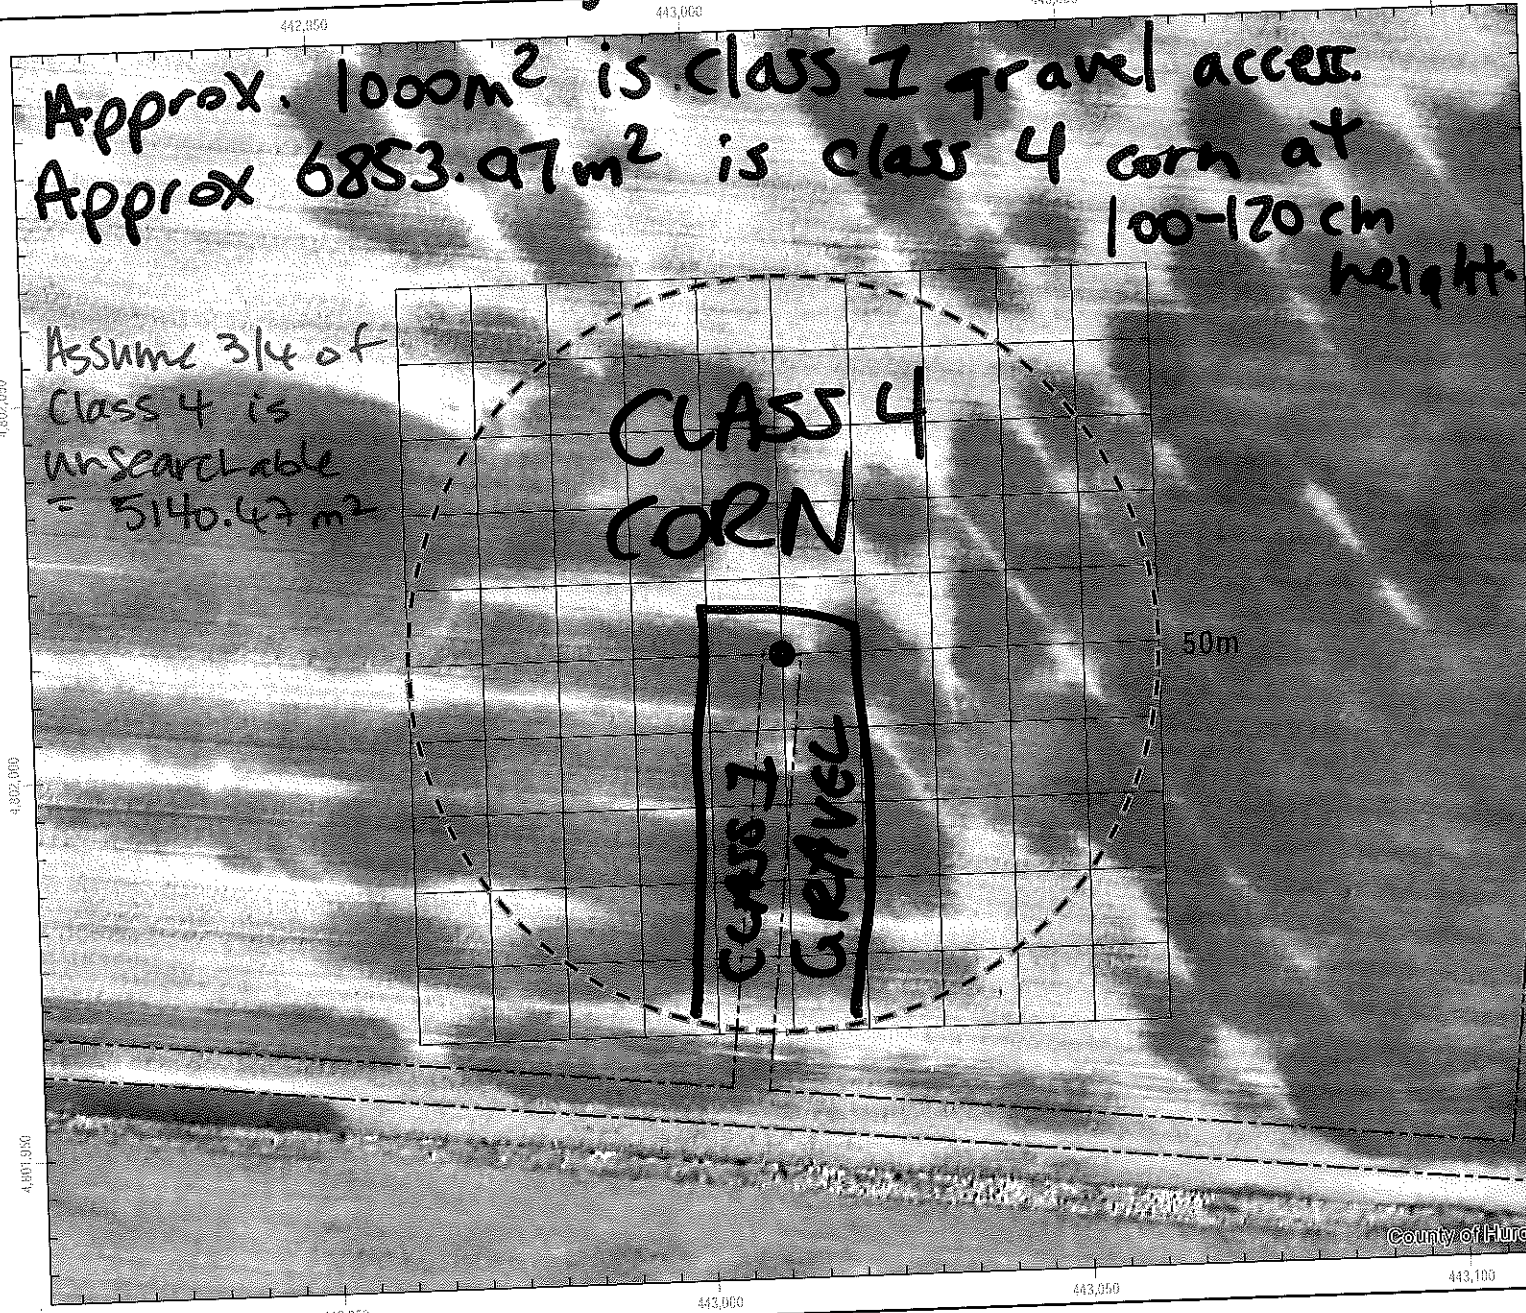 442,950
443,000
Approx. 1000m² is class 1 gravel access.
Approx 6853.97m² is class 4 corn at
100-120 cm
height.
Assume 3/4 of
Class 4 is
unsearchable
= 5140.47 m²
CLASS 4
CORN
50m
CLASS 1
GRAVEL
4,802,000
4,801,950
County of Huro
443,000
443,050
443,100